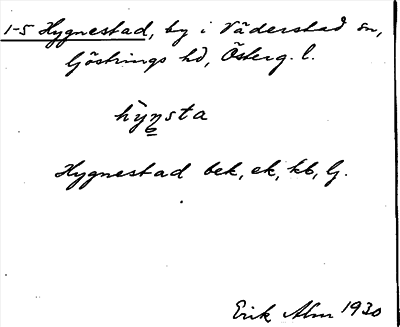 1-5 Hygnestad, by i Väderstad sn,
Göstrings hd, Österg. l.
hỳṉsta
Hygnestad bek, ek, kb, G.
Erik Alm 1930